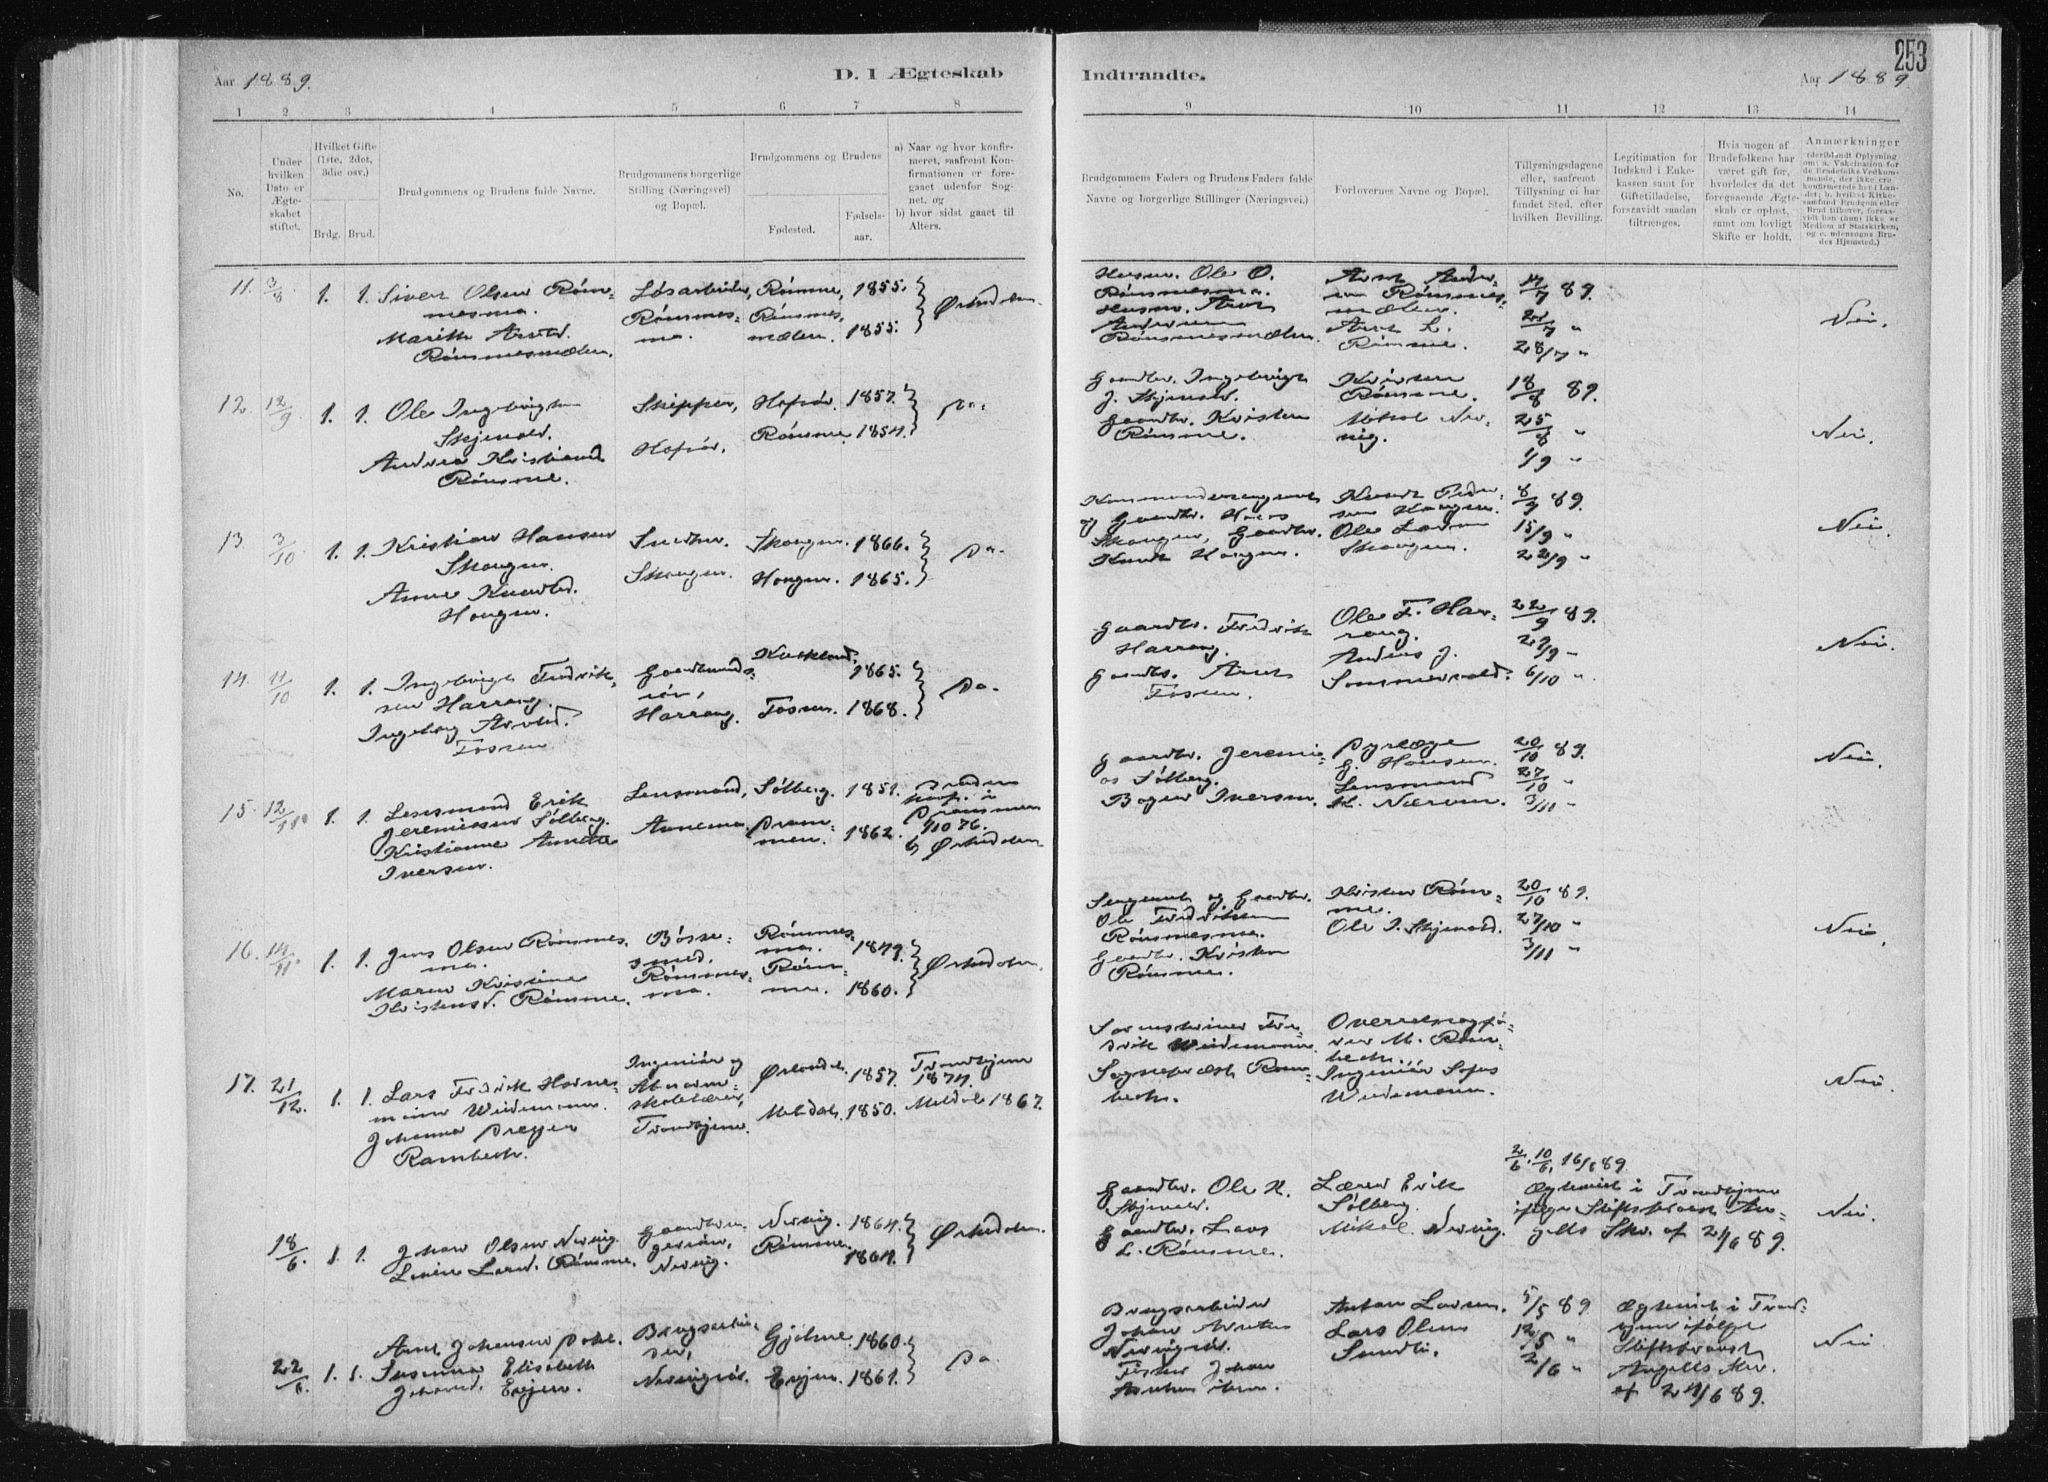 253
Aar 1889.
D. I Ægteskab
Indtraadte.
Aar 1889.
1 2 3 4 5 6 7 8
9 10 11 12 13 14
No.
Under hvilken Dato er Ægteskabet stiftet.
Hvilket Gifte (1ste, 2det, 3die osv.)
Brdg. Brud.
Brudgommens og Brudens fulde Navne.
Brudgommens borgerlige Stilling (Næringsvei) og Bopæl.
Brudgommens og Brudens
Fødested.
Fødselsaar.
a) Naar og hvor konfirmeret, saafremt Konfirmationen er foregaaet udenfor Sognet, og
b) hvor sidst gaaet til Alters.
Brudgommens Faders og Brudens Faders fulde Navne og borgerlige Stillinger (Næringsvei.)
Forlovernes Navne og Bopæl.
Tillysningsdagene eller, saafremt Tillysning ei har fundet Sted, efter hvilken Bevilling.
Legitimation for Indskud i Enkekassen samt for Giftetilladelse, forsaavidt saadan tiltrænges.
Hvis nogen af Brudefolkene har været gift før, hvorledes da det foregaaende Ægteskab er opløst, samt om lovligt Skifte er holdt.
Anmærkninger
11. 3/8 1. 1. Siver Olsen Røm-
mesmo.
Marith Arntsd.
Rømmesmælen.
Løsarbeider,
Rømmes-
mo.
Rømme, 1855.
Rømmes-
mælen. 1855.
Ørkedalen
Husm. Ole O.
Rømmesmo.
Husm. Arnt
Andersen
Rømmesmælen
Arnt Ander-
sen Rømmes-
mælen.
Arnt L.
Rømme.
14/7 89.
21/7 "
28/7 "
Nei.
12. 12/9 1. 1. Ole Ingebrigtsen
Skjenald.
Andrea Kristensd.
Rømme.
Skipper,
Hofsør.
Hofsør. 1857.
Rømme 1854.
Do.
Gaardbr. Ingebrigt
J. Skjenald.
Gaardbr. Kristen
Rømme.
Kristen
Rømme.
Mikal Ner-
vig.
18/8 89.
25/8 "
1/9 "
Nei.
13. 3/10 1. 1. Kristian Hansen
Skougen.
Anne Knudtsd.
Hougen.
Snedker
Skougen.
Skougen. 1866.
Hougen. 1865.
Do.
Kommandersergeant
og Gaardbr. Hans
Skougen, Gaardbr.
Knudt Hougen.
Knudt Peder-
sen Hougen.
Ole Larsen
Skougen.
8/9 89.
15/9 "
22/9 "
Nei.
14. 11/10 1. 1. Ingebrigt Fredrik-
sen Harrang.
Ingeborg Arntsd.
Fossen
Gaardmands-
søn,
Harrang.
1865.
Fossen. 1868.
Do.
Gaardbr. Fredrik
Harrang.
Gaardbr. Arnt
Fossen.
Ole F. Har-
rang.
Anders J.
Sommervold.
22/9 89.
29/9 "
6/10 "
Nei.
15. 12/11 1. 1. Lensmand Erik
Jeremiassen Sølberg.
Kristianne Annette
Iversen.
Lensmand,
Annemo
Sølberg. 1851.
Dram-
men. 1862.
Bruden
konf. i
Drammen
1/10 76.
b) Ørkedalen
Gaardbr. Jeremi-
as Sølberg.
Bager Iversen.
Dyrlæge
G. Hansen.
Lensmand
K. Nærven.
20/10 89.
27/10 "
3/11 "
Nei.
16. 14/11 1. 1. Jens Olsen Rømmes-
mo.
Maren Kristine
Kristensd. Rømme.
Bøsse-
smed,
Rømmes-
mo.
Rømmes-
mo. 1849.
Røm-
me. 1860.
Ørkedalen.
Sergeant og Gaardbr.
Ole Fredriksen
Rømmesmo.
Gaardbr. Kristen
Rømme.
Kristen Røm-
me.
Ole I. Skjenald.
20/10 89.
27/10 "
3/11 "
Nei.
17. 21/12. 1. 1. Lars Fredrik Hornemann Weidemann.
Johanna Dreyer
Rambech.
Ingeniør og
Trondhjem.
Ørlandet. 1857.
Meldal. 1850.
Trondhjem
1874.
Meldal 1867.
Sorenskriver Fre-
drik Weidemann.
Sogneprest Ram-
bech.
Overretssagfø-
rer M. Ram-
bech.
Ingeniør Sofus
Weidemann.
Nei.
18/6 1. 1. Johan Olsen Nervig
Lovise Larsd. Rømme.
Nervig.
Nervig. 1864.
Rømme. 1864.
Ørkedalen.
Gaardbr. Ole K.
Skjenald.
Gaardbr. Lars
L. Rømme.
Lærer Erik
Sølberg.
Mikal Nervig.
2/6. 10/6. 16/6 89.
Ægteviet i Trondhjem
ifølge Stiftsprovst An-
gells Skr. af 24/6 89.
Nei.
22/6. 1. 1. Arnt Johansen Dahl.
Susanna Elisabeth
Johansd. Evjen.
Brugsarbei-
der,
Nervigsør.
Gjølme. 1860.
Evjen. 1861.
Do
Brugsarbeider
Johan Arntsen
Nervigsør.
Fisker Johan
Anton Larsen.
Lars Olsen
Sundli.
5/5 89
12/5 "
2/6 "
Ægteviet i Trond-
hjem ifølge
Stiftsprovst
Angells Skr.
af 24/6 89.
Nei